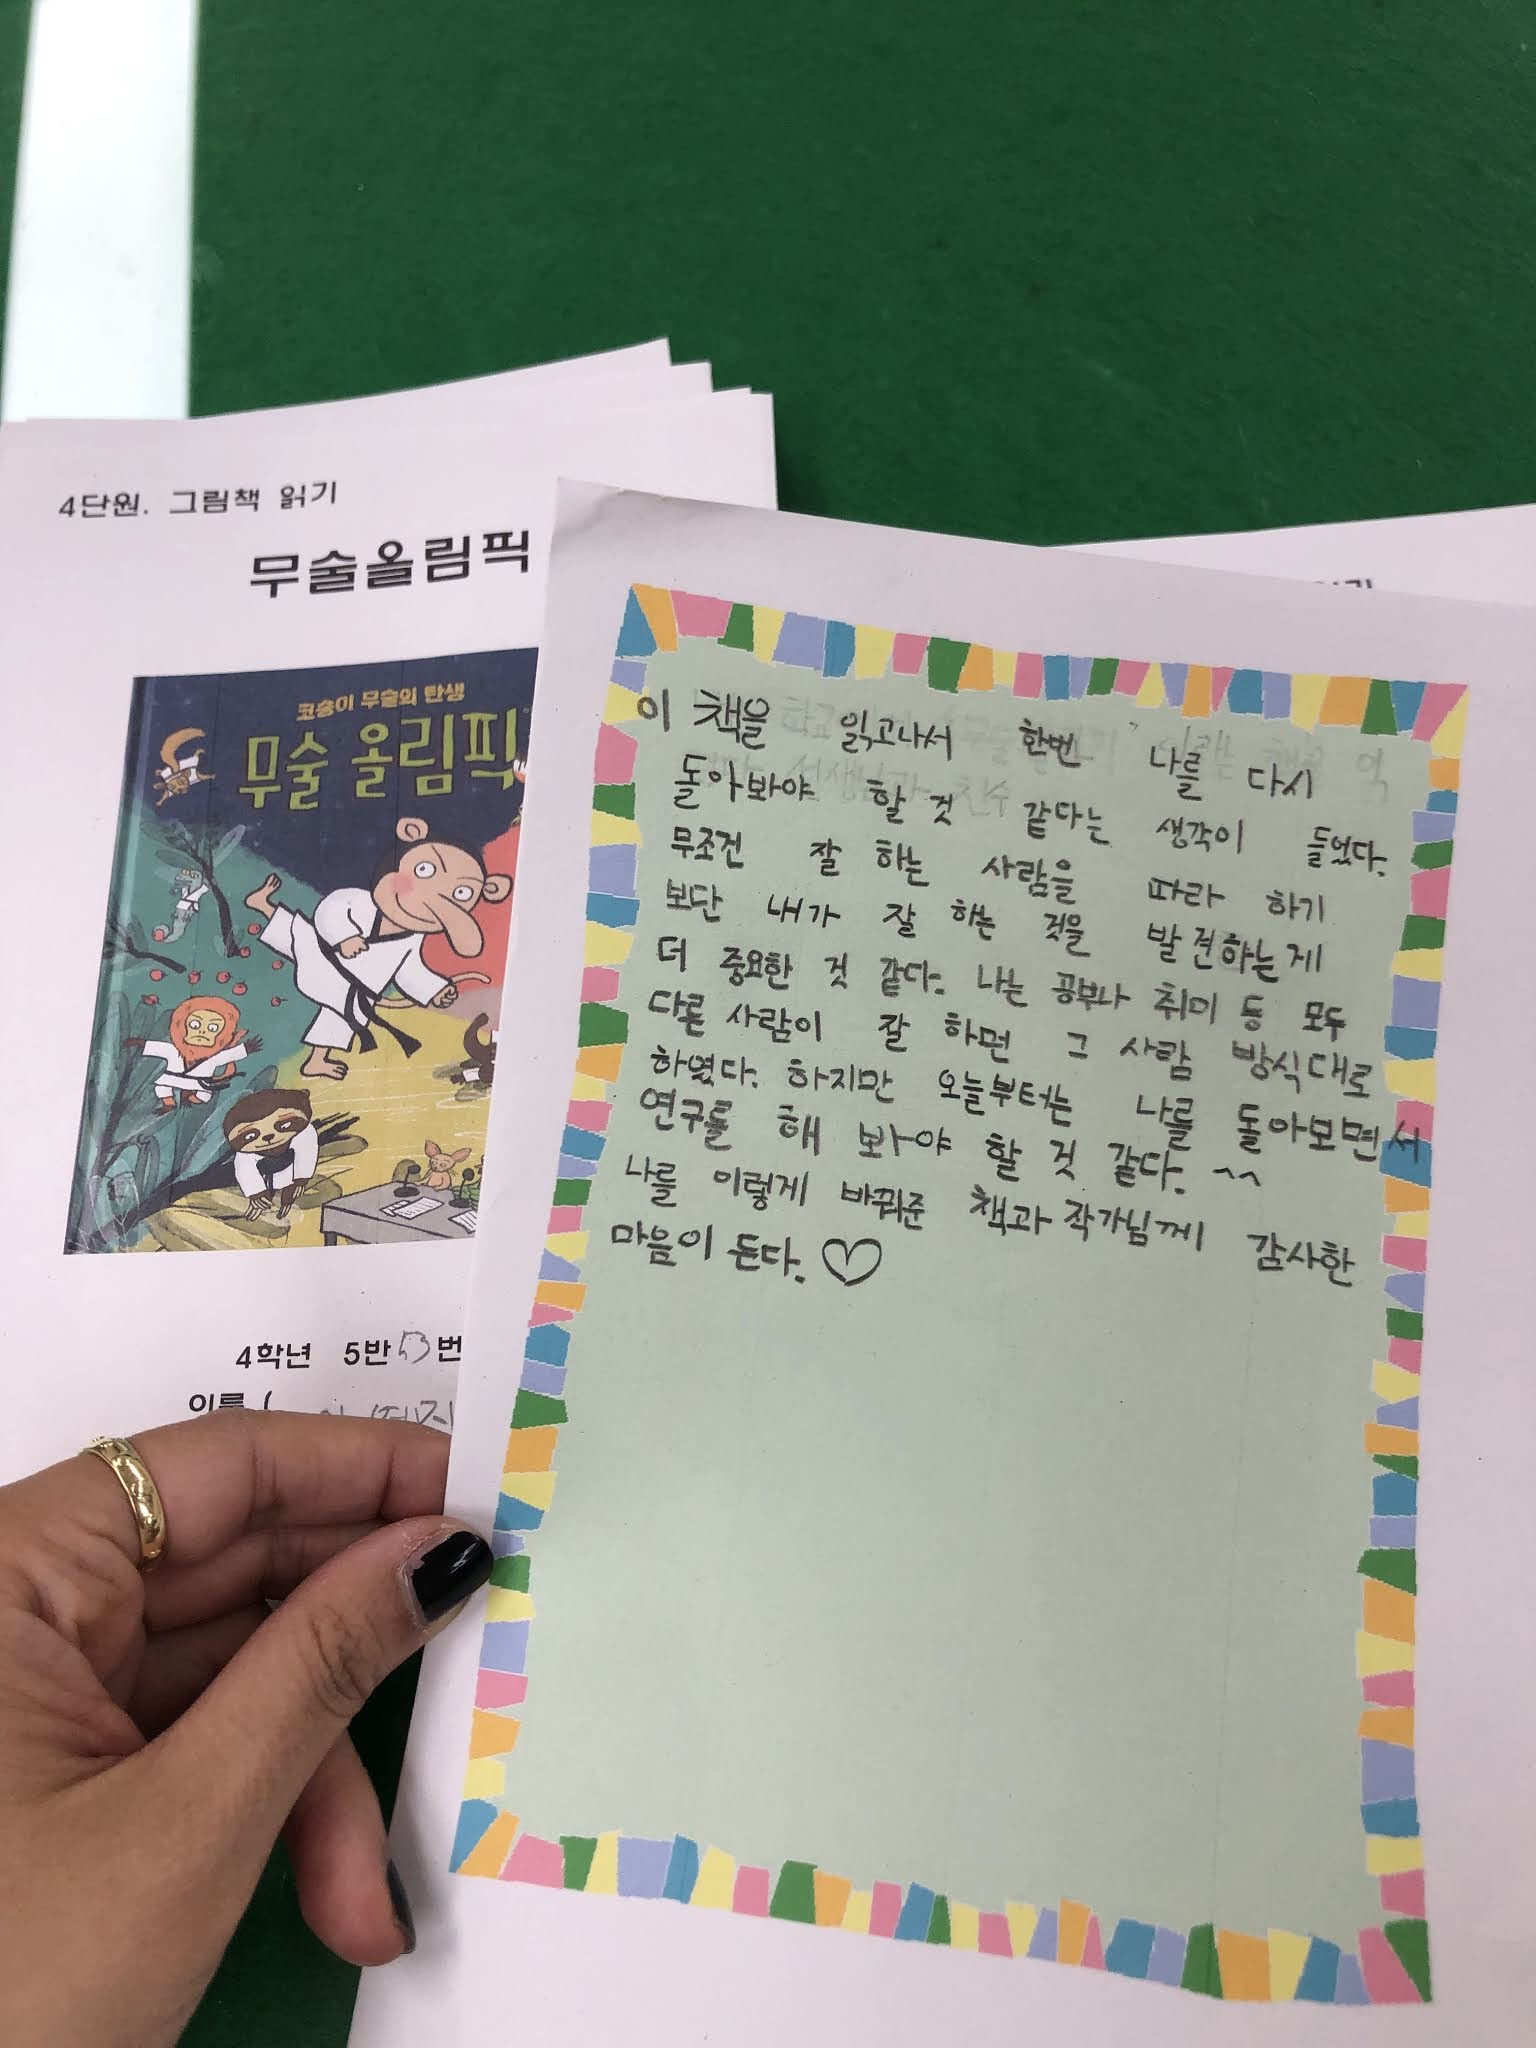 4단원. 그림책 읽기
무술올림픽
코숭이 무술의 탄생
무술 올림픽
4학년 5반 53번
이름 (
이 책을 읽고나서 한번 나를 다시
돌아봐야 할 것 같다는 생각이 들었다.
무조건 잘 하는 사람을 따라 하기
보단 내가 잘 하는 것을 발견하는게
더 중요한 것 같다. 나는 공부나 취미 등 모두
다른 사람이 잘 하면 그 사람 방식대로
하였다. 하지만 오늘부터는 나를 돌아보면서
연구를 해 봐야 할 것 같다. ^^
나를 이렇게 바꿔준 책과 작가님께 감사한
마음이 든다. ♡